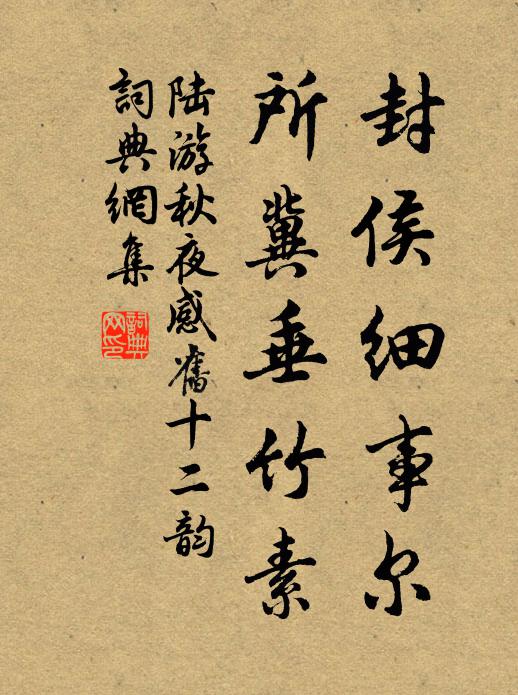 封侯细事尔
所冀垂竹素
陆游秋夜感舊十二韵
詞典網集
詞典
网印